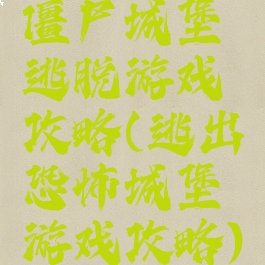 僵尸城堡
逃脱游戏
攻略(逃出
恐怖城堡
游戏攻略)